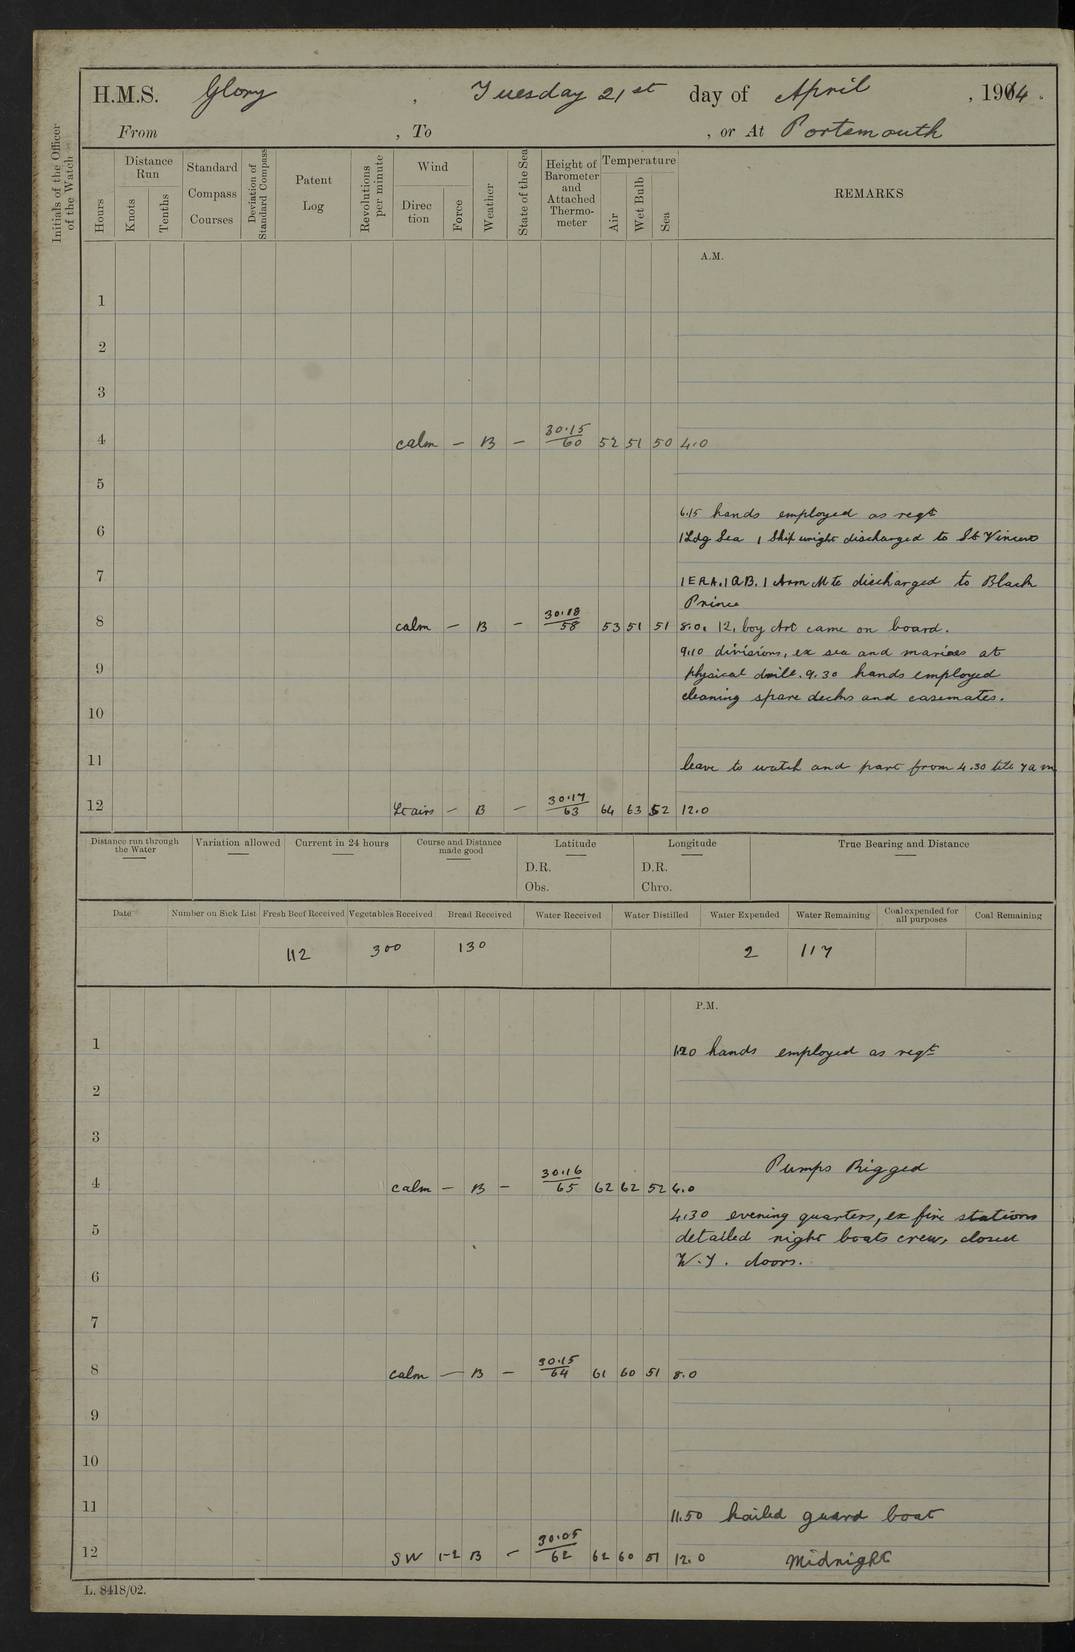 H.M.S. Glory, Tuesday 21st day of April, 1914.
From , To , or At Portsmouth
Initials of the Officer of the Watch
Hours
Distance Run
Knots
Tenths
Standard Compass Courses
Deviation of Standard Compass
Patent Log
Revolutions per minute
Wind
Direction
Force
Weather
State of the Sea
Height of Barometer and Attached Thermometer
Temperature
Air
Wet Bulb
Sea
REMARKS
A.M.
1
2
3
4 calm — B — 30.15/60 52 51 50 4.0
5
6.15 hands employed as reqt
6
1 Ldg Sea 1 Shipwright discharged to St Vincent
7
1 E.R.A. 1 Q.B. 1 Arm Mte discharged to Black
Prince
8 calm — B — 30.18/58 53 51 51 8.0. 12, boy Art came on board.
9.10 divisions, ex sea and marines at
9
physical drill. 9.30 hands employed
cleaning spare decks and casemates.
10
11
leave to watch and part from 4.30 till 7 a m
12 Lt airs — B — 30.17/63 64 63 52 12.0
Distance run through the Water
Variation allowed
Current in 24 hours
Course and Distance made good
Latitude
D.R.
Obs.
Longitude
D.R.
Chro.
True Bearing and Distance
Date Number on Sick List Fresh Beef Received Vegetables Received Bread Received Water Received Water Distilled Water Expended Water Remaining Coal expended for all purposes Coal Remaining
112 300 130 2 117
P.M.
1
1.20 hands employed as reqt
2
3
Pumps Rigged
4 calm — B — 30.16/65 62 62 52 4.0
4.30 evening quarters, ex fire stations
5
detailed night boats crew, closed
W.T. doors.
6
7
8 calm — B — 30.15/64 61 60 51 8.0
9
10
11
11.50 hailed guard boat
12 SW 1-2 B — 30.05/62 62 60 51 12.0 Midnight
L. 8418/02.